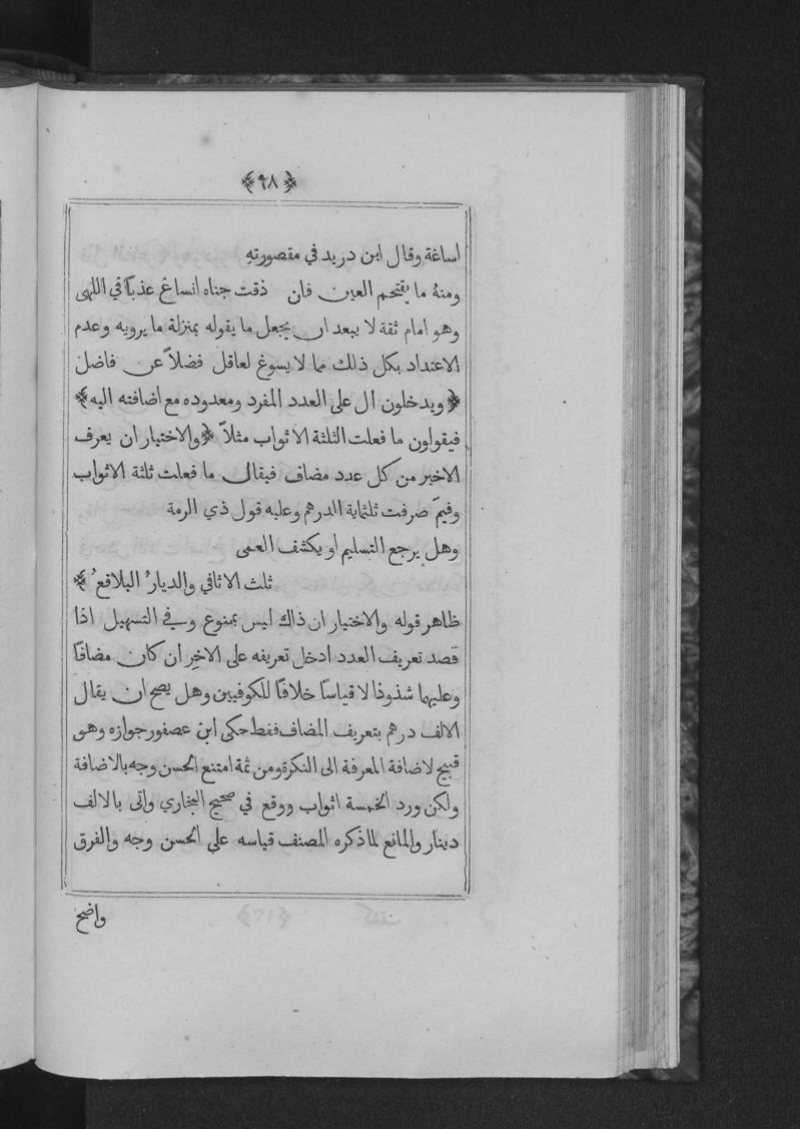 ﴿٩٨﴾
اساغة وقال ابن دريد في مقصورتهِ
ومنهُ ما يقتحم العين فان ذقت جناه انساغ عذبًا في اللهى
وهو امام ثقة لا يبعد ان يجعل ما يقوله بمنزلة ما يرويه وعدم
الاعتداد بكل ذلك مما لا يسوغ لعاقل فضلاً عن فاضل
﴿ويدخلون ال على العدد المفرد ومعدوده مع اضافته اليه﴾
فيقولون ما فعلت الثلثة الاثواب مثلاً ﴿والاختيار ان يعرف
الاخير من كل عدد مضاف فيقال ما فعلت ثلثة الاثواب
وفيمَ صرفت ثلثماية الدرهم وعليه قول ذي الرمة
وهل يرجع التسليم او يكشف العمى
ثلث الاثافي والديارُ البلاقعُ﴾
ظاهر قوله والاختيار ان ذاك ليس بممنوع وفي التسهيل اذا
قصد تعريف العدد ادخل تعريفه على الاخِر ان كان مضافًا
وعليهما شذوذا لا قياسًا خلافًا للكوفيين وهل يصح ان يقال
الالف درهم بتعريف المضاف فقط حكى ابن عصفور جوازه وهو
قبيح لاضافة المعرفة الى النكرة ومن ثمة امتنع الحسن وجه بالاضافة
ولكن ورد الخمسة اثواب ووقع في صحيح البخاري واتى بالالف
دينار والمانع لما ذكره المصنف قياسه على الحسن وجه والفرق
واضح